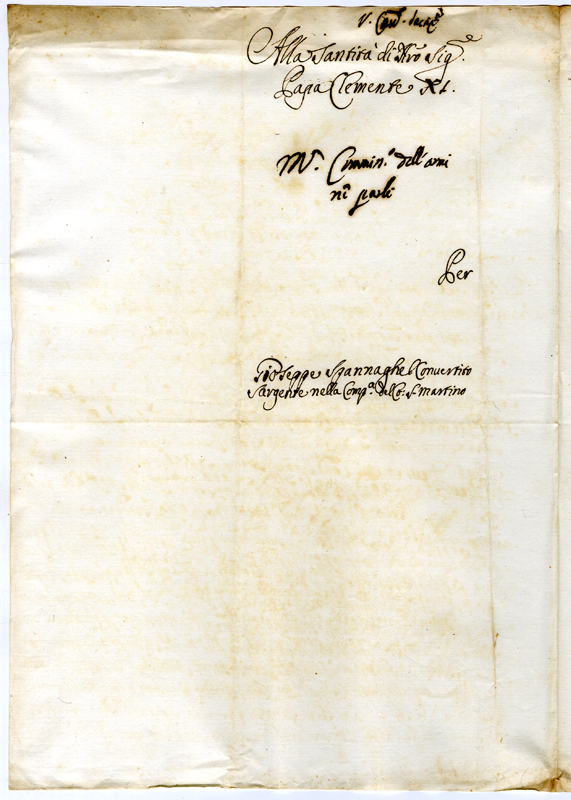 Alla Santità di Nro Sigre.
Papa Clemente XI.
Mr. Commin.o dell'armi
ni parli
Per
Gioseppe Spannaghel Convertito
Sargente nella Comp.a del Co: S. Martino